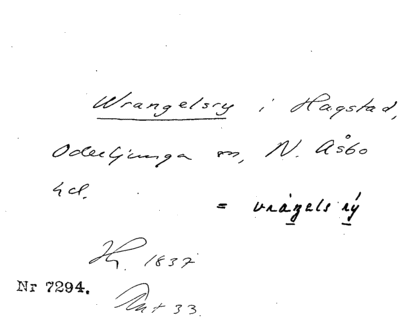 Wrangelsry i Hagstad,
Oderljunga sn, N. Åsbo
hd.
= vráŋels rý
1837
Nr 7294.
33.